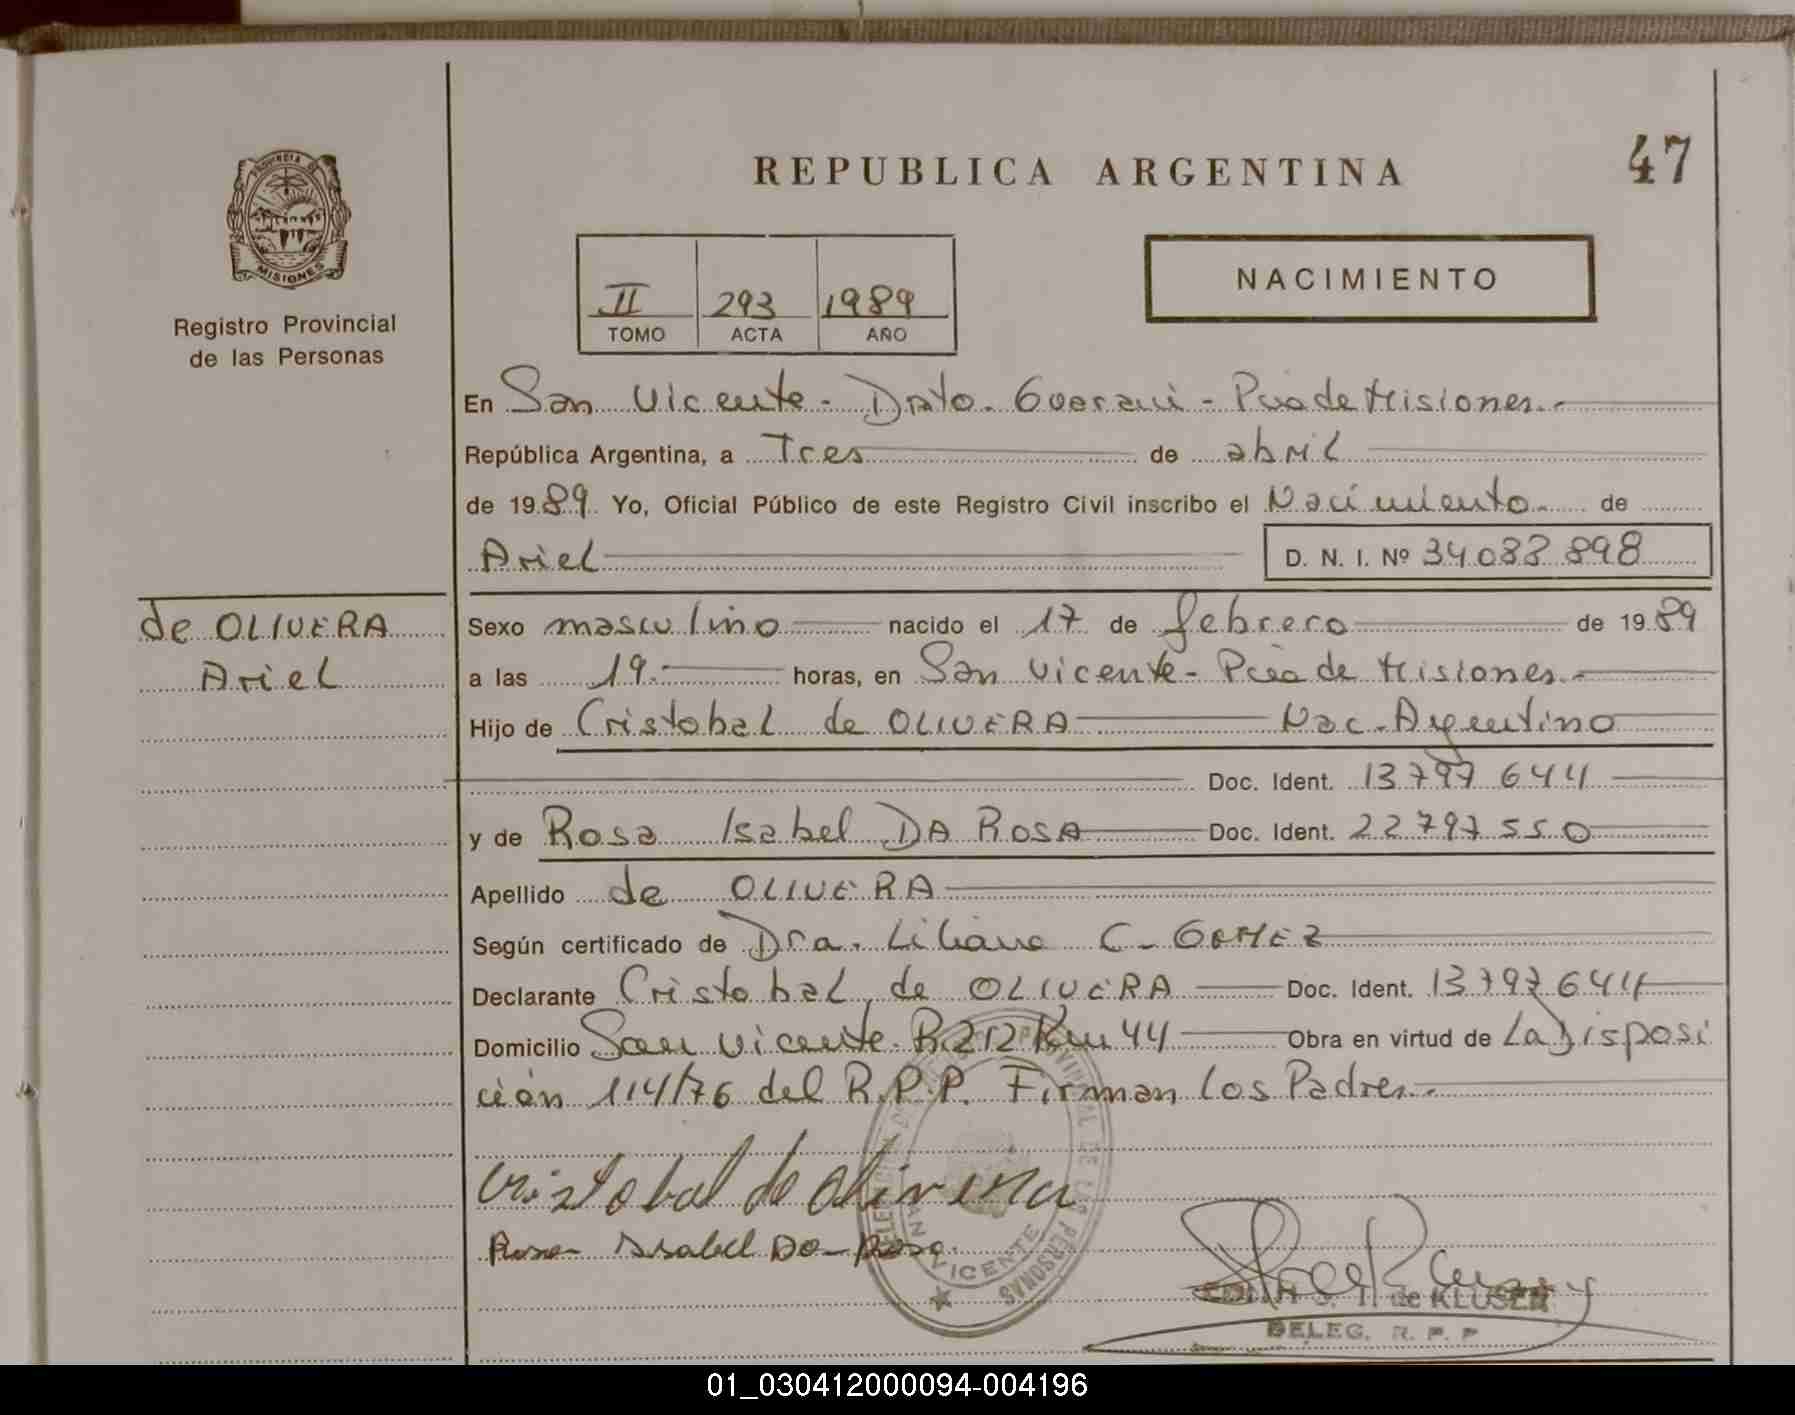 47
REPUBLICA ARGENTINA
PROVINCIA DE
MISIONES
NACIMIENTO
II 293 1989
TOMO ACTA AÑO
Registro Provincial
de las Personas
En San Vicente - Dpto. Guaraní - Pcia de Misiones.-
República Argentina, a Tres de abril
de 1989. Yo, Oficial Público de este Registro Civil inscribo el Nacimiento de
Ariel D. N. I. Nº 34 083 898
de OLIVERA
Ariel
Sexo masculino nacido el 17 de febrero de 1989
a las 19.- horas, en San Vicente - Pcia de Misiones.-
Hijo de Cristobal de OLIVERA Nac. Argentino
Doc. Ident. 13 797 644
y de Rosa Isabel DA ROSA Doc. Ident. 22 797 550
Apellido de OLIVERA
Según certificado de Dra. Liliana C. GOMEZ
Declarante Cristobal de OLIVERA Doc. Ident. 13 797 644
Domicilio San Vicente. R 212 Km 44 Obra en virtud de La Disposi
ción 114/76 del R.P.P. Firman los Padres.-
Cristobal de olivera
Rosa Isabel Da Rosa.
PROVINCIAL DE LAS PERSONAS
SAN VICENTE
de KLUSER
DELEG. R. P. P
01_030412000094-004196